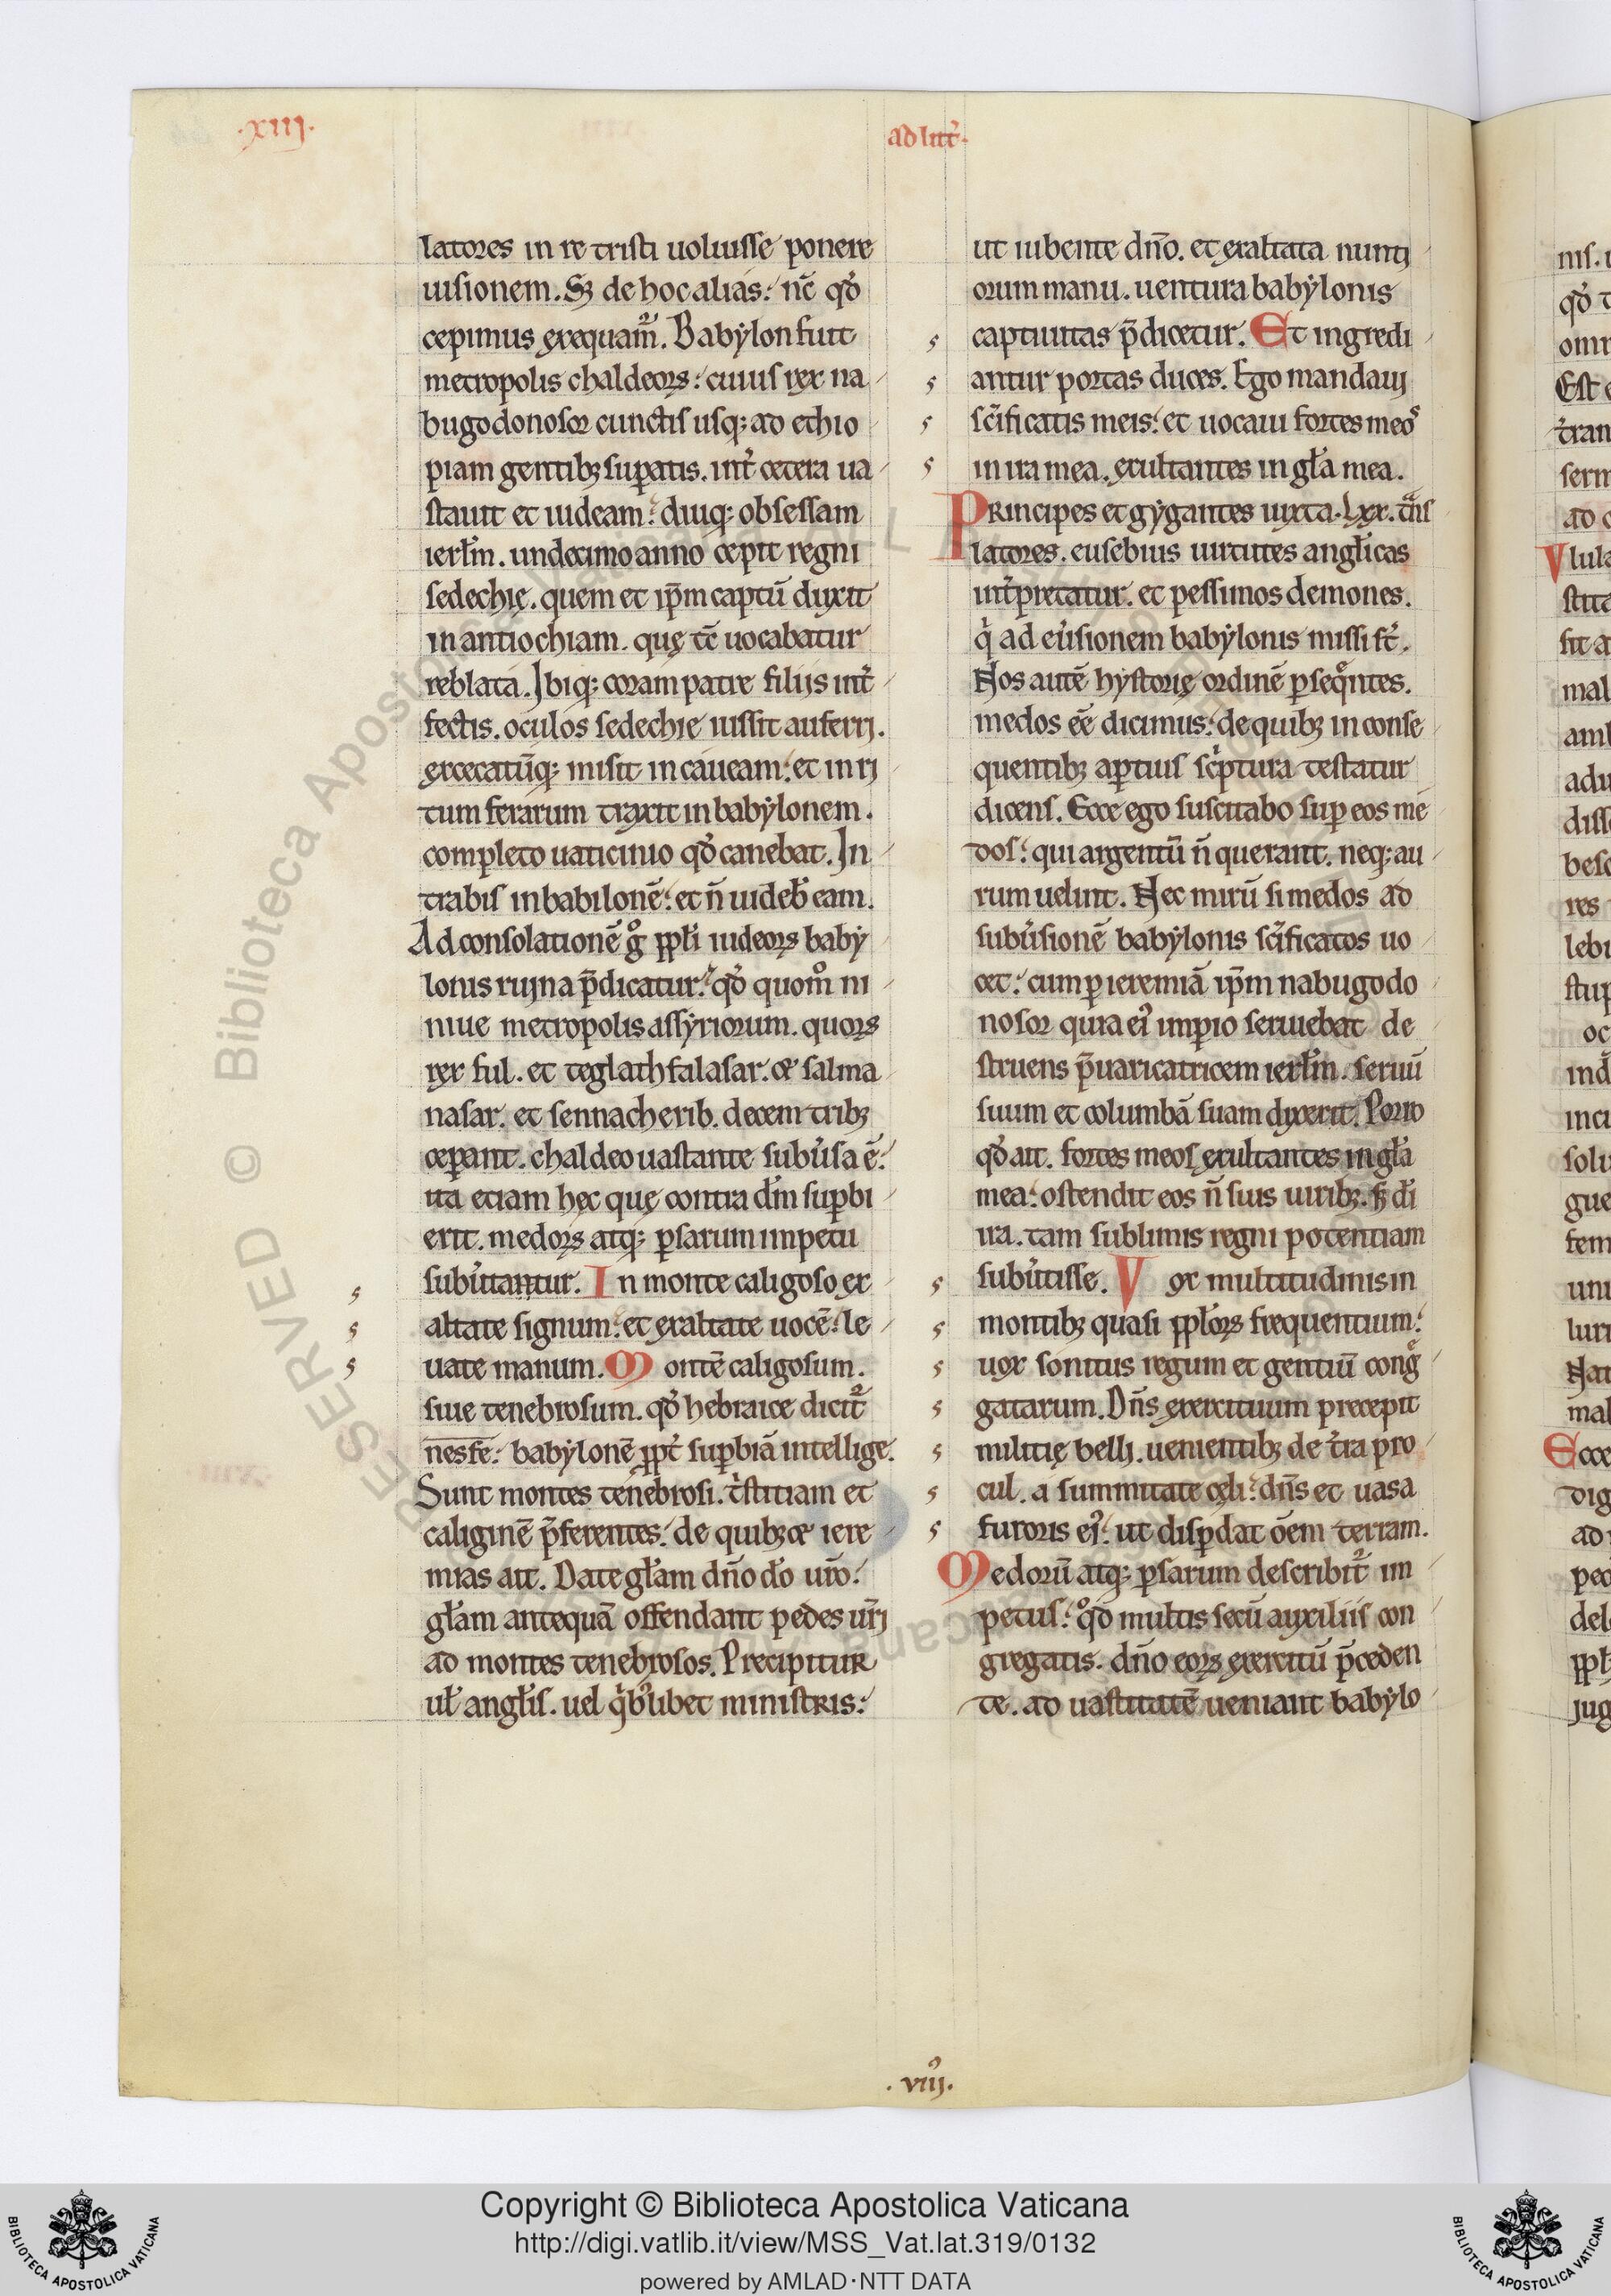 ·xiij·
ad litt̄·
latores in re tristi uoluisse ponere
uisionem. Sꝫ de hoc alias: nc̄ qd̓
cepimus exequam̄. Babylon fuit
metropolis chaldeoꝝ: cuius rex na
bugodonosor cunctis usqꝫ ad ethio
piam gentibꝫ suꝑatis. int̓ cetera ua
stauit et iudeam: diuqꝫ obsessam
ierl̄m. undecimo anno cepit regni
sedechię. quem et ip̄m captū duxit
in antiochiam. quę tc̄ uocabatur
reblata. Ibiqꝫ coram patre filijs int̓
fectis. oculos sedechie iussit auferrj.
excecatūqꝫ misit in caueam: et in rj
tum ferarum traxit in babylonem.
completo uaticinio qd̓ canebat. In
trabis in babilonē: et n̄ uideb̄ eam.
Ad consolationē gͦ ppl̄i iudeoꝝ baby
lonis rujna p̄dicatur: qd̓ quom̊ ni
niue metropolis assyriorum. quoꝝ
rex ful. et teglathfalasar. & salma
nasar. et sennacherib. decem tribꝫ
ceꝑant. chaldeo uastante subu̓sa ē:
ita etiam hęc quę contra dm̄ suꝑbi
erit. medoꝝ atqꝫ ꝑsarum impetu
subu̓tantur. In monte caligoso ex
altate signum: et exaltate uocē: le
uate manum. Montē caligosum.
siue tenebrosum. qd̓ hebraice dicit᷑
nesfe: babylonē ꝓpt̓ suꝑbiā intellige.
Sunt montes tenebrosi. t̓stitiam et
caliginē p̄ferentes: de quibꝫ & iere
mias ait. Date gl̄am dn̄o do̓ uro̅:
gl̄am antequā offendant pedes ur̄j
ad montes tenebrosos. Precipitur
ul̄ angl̄is. uel qͥbꝰlibet ministris:
ut iubente dn̄o. et exaltata nuntj
orum manu. uentura babylonis
captiuitas p̄dicetur. Et ingredi
antur portas duces. Ego mandauj
sc̄ificatis meis: et uocaui fortes meos
in ira mea. exultantes in gl̄a mea.
Principes et gygantes iuxta·lxx·tn̄s
latores. eusebius uirtutes angl̄icas
int̓pretatur. et pessimos demones.
qͥ ad eu̓sionem babylonis missi st̄.
Nos autē hystorię ordinē ꝑseqͤntes.
medos eē dicimus: de quibꝫ in conse
quentibꝫ aꝑtius sc̓ptura testatur
dicens. Ecce ego suscitabo suꝑ eos me
dos: qui argentū n̄ querant. neqꝫ au
rum uelint. Nec mirū si medos ad
subu̓sionē babylonis sc̄ificatos uo
cet: cum ꝑ ieremiā ip̄m nabugodo
nosor quia eiꝰ imꝑio seruiebat de
struens p̄uaricatricem ierl̄m. seruū
suum et columbā suam dixerit. Porro
qd̓ ait. fortes meos exultantes in gl̄a
mea: ostendit eos n̄ suis uiribꝫ. sꝫ di̓
ira. tam sublimis regni potentiam
subu̓tisse. Vox multitudinis in
montibꝫ quasi ppl̄oꝝ frequentium:
uox sonitus regum et gentiū cong̓
gatarum. Dn̄s exercituum precepit
militię bellj. uenientibꝫ de t̓ra pro
cul. a summitate cęli: dn̄s et uasa
furoris eiꝰ: ut disꝑdat oēm terram.
Medorū atqꝫ ꝑsarum describit᷑ im
petus: qd̓ multis secū auxiliis con
gregatis. dn̄o eoꝝ exercitū p̄ceden
te. ad uastitatē ueniant babylo
·viijꝰ·
Copyright © Biblioteca Apostolica Vaticana
http://digi.vatlib.it/view/MSS_Vat.lat.319/0132
powered by AMLAD·NTT DATA
BIBLIOTECA APOSTOLICA VATICANA
BIBLIOTECA APOSTOLICA VATICANA